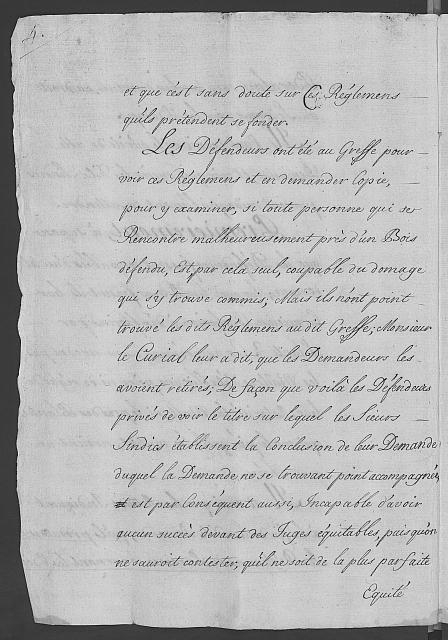 4.
et que c'ést sans doute sur Ces Réglemens
qu'ils prétendent se fonder.
Les Défendeurs ont été au Greffe pour
voir ces Réglemens et en demander Copie,
pour y éxaminer, si toute personne qui se
Rencontre malheureusement près d'un Bois
défendu, Est par cela seul, coupable du domage
qui s'y trouve commis; Mais ils n'ont point
trouvé les dits Réglemens au dit Greffe; Monsieur
le Curial leur a dit, que les Demandeurs les
avoient retirés; De façon que voilà les Défendeurs
privés de voir le titre sur lequel les Sieurs
Sindics établissent la Conclusion de leur Demande
duquel la Demande ne se trouvant point accompagnée,
est par Conséquent aussi, Incapable d'avoir
aucun succès devant des Juges équitables, puis qu'on
ne sauroit contester, qu'il ne soit de la plus parfaite
Equité